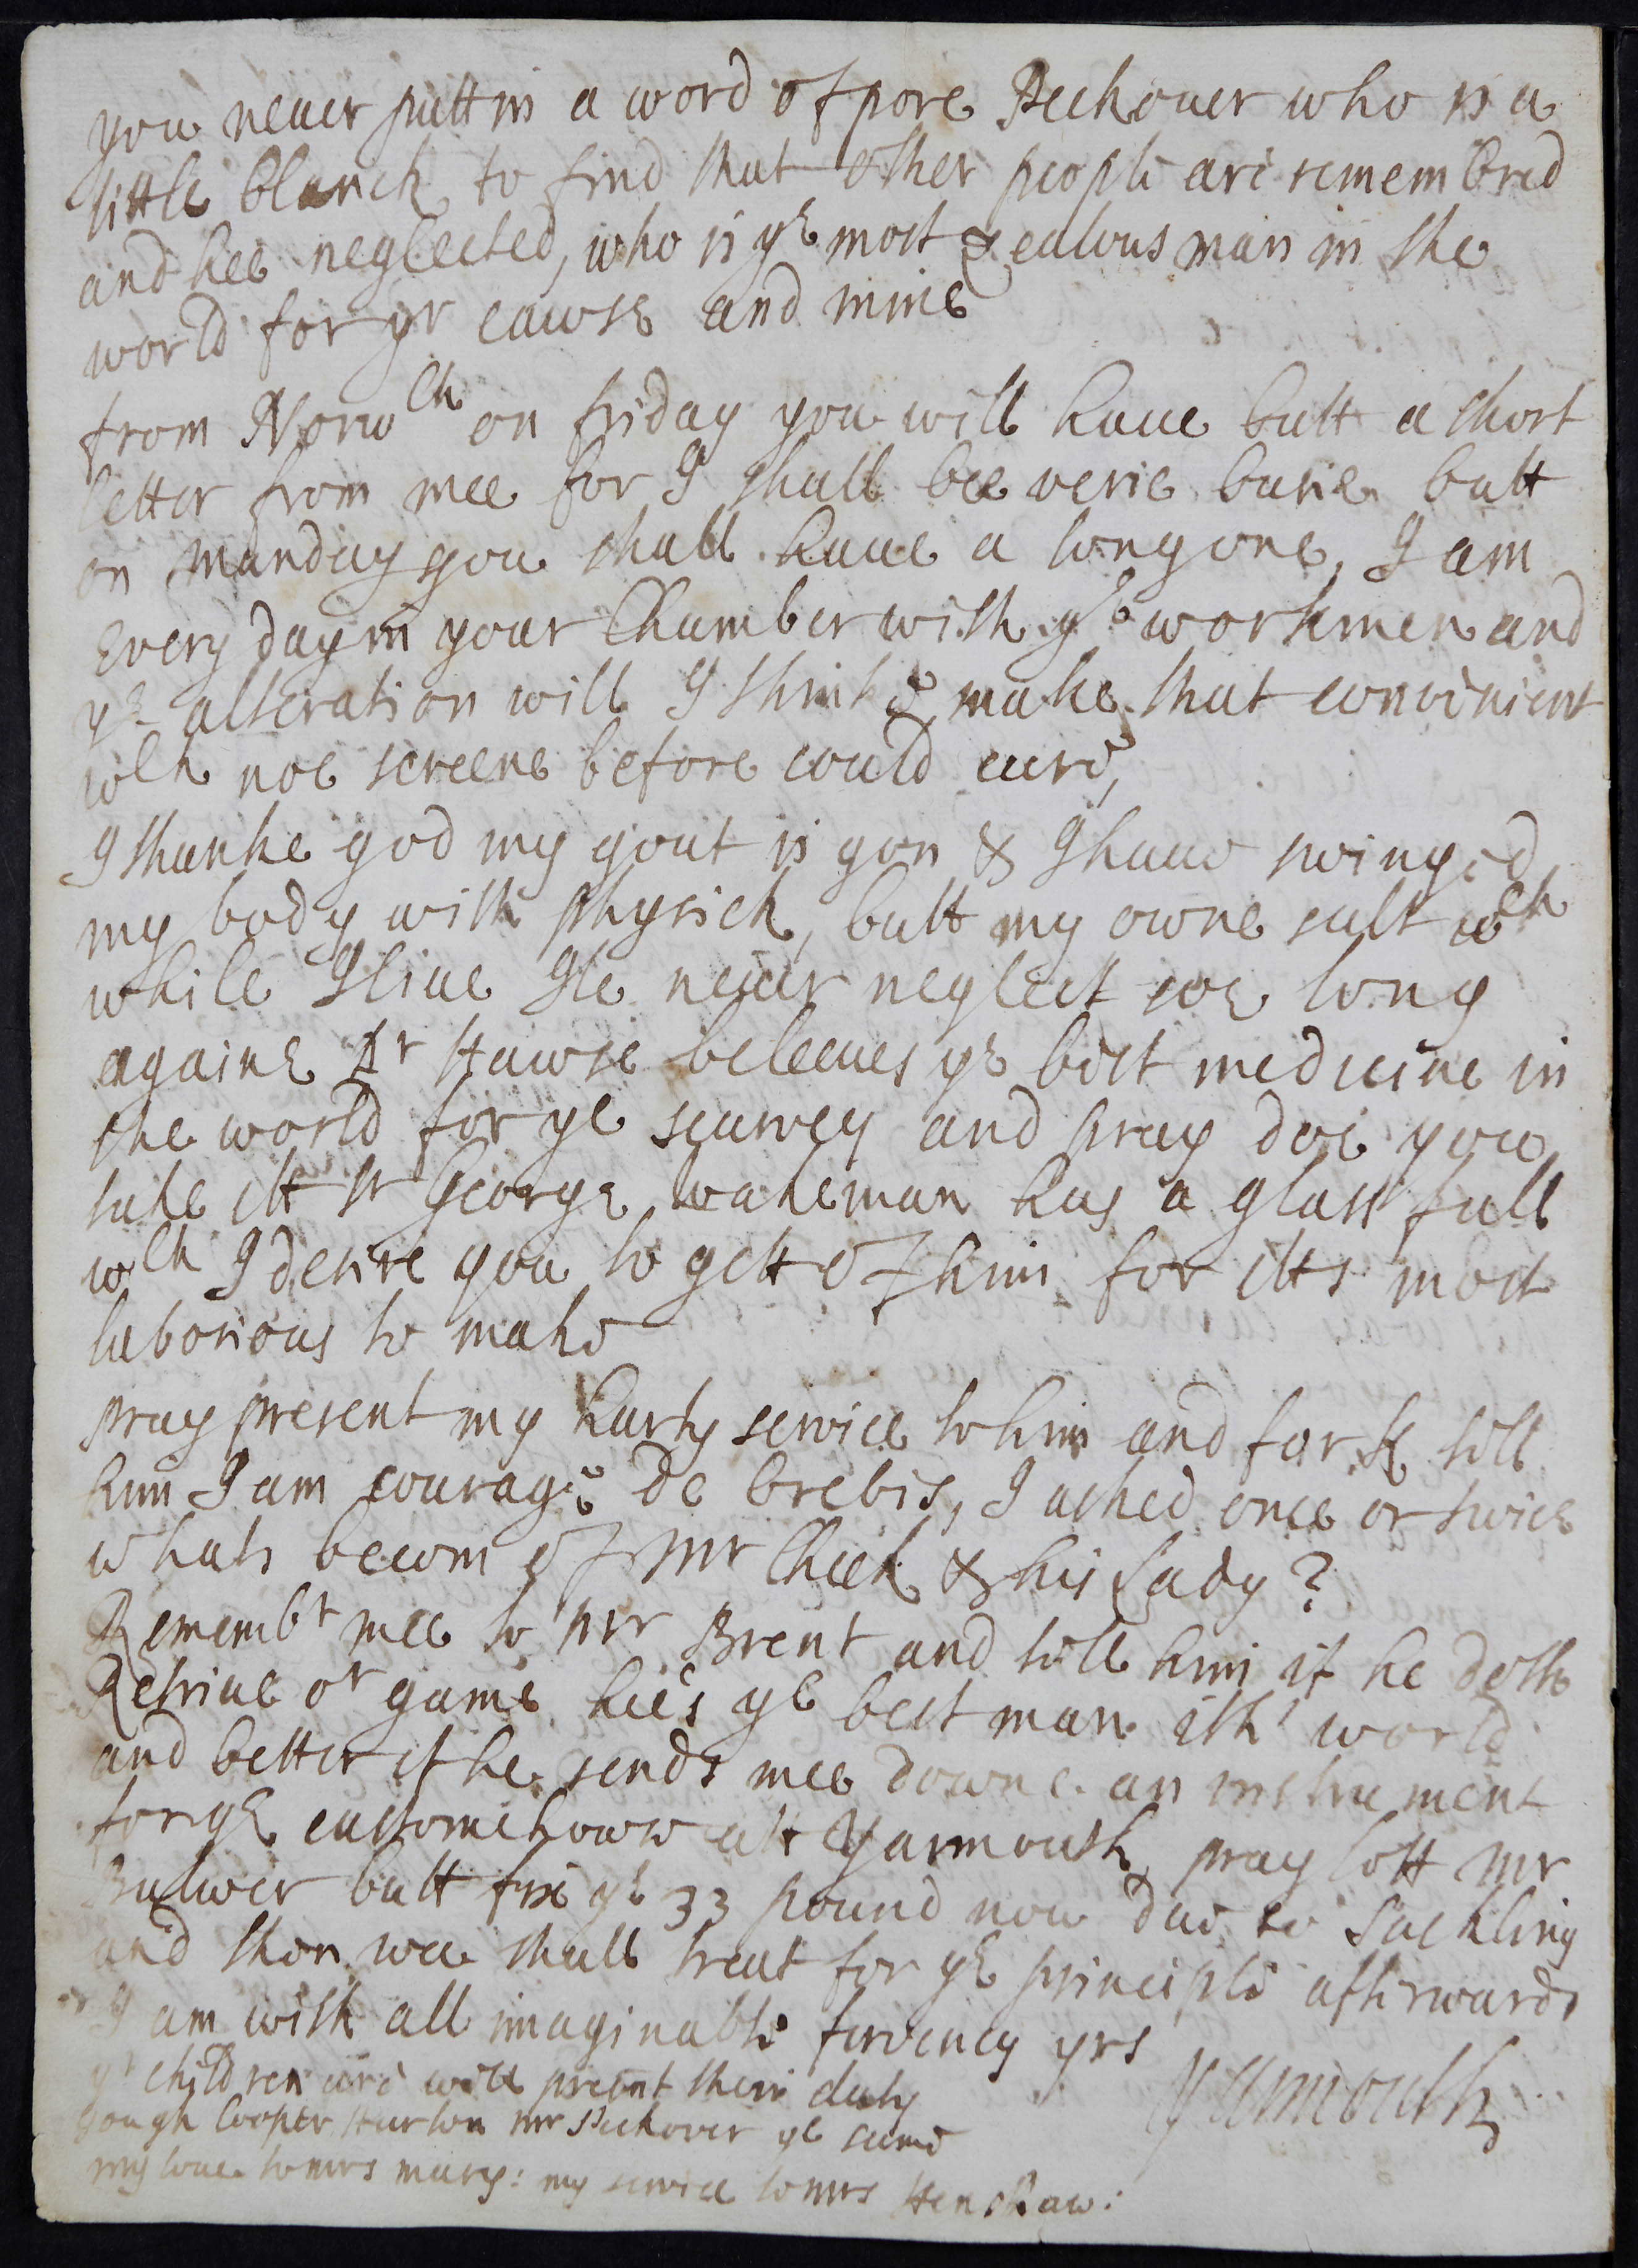 you never putt in a word of pore Peckover who is a
little blanck to find that other people are remembred
and hee neglected, who is ye most zealous man in the
world for yr cawse and mine
from Norwch on friday you will have butt a short
letter from mee for I shall bee verie busie butt
on munday you shall have a long one, I am
Every day in your Chamber with ye workmen and
ye alteration will I thinke make that convenient
wch noe screene before could cure,
I thanke god my gout is gon & I have swinged
my body with physick, butt my owne sallt wch
while I live Ile never neglect soe long
againe Dr Hawse beleeves ye best medicine in
the world for ye scurvey and pray doe you
take itt Sr George wakeman has a glass full
wch I desire you to gett of him for itts most
laborious to make
pray present my harty service to him and tell
him I am courage de brebis, I asked once or twice
whats becom of Mr Cheek & his Lady?
Remembr mee to Mr Brent and tell him if he doth
Retrive or game hee's ye best man ith' world
and better if he sends mee downe an instrument
for ye customehouse att Yarmouth, pray lett Mr
Bulwer butt fix ye 33 pound now due to Suckling
and then wee shall treat for ye principle afterwards
I am with all imaginable fervency yrs
Yarmouth
yr children are well present their duty
Gough Cooper Hurton Mr Peckover ye same
my love to mrs mary: my service to mrs Henshaw: